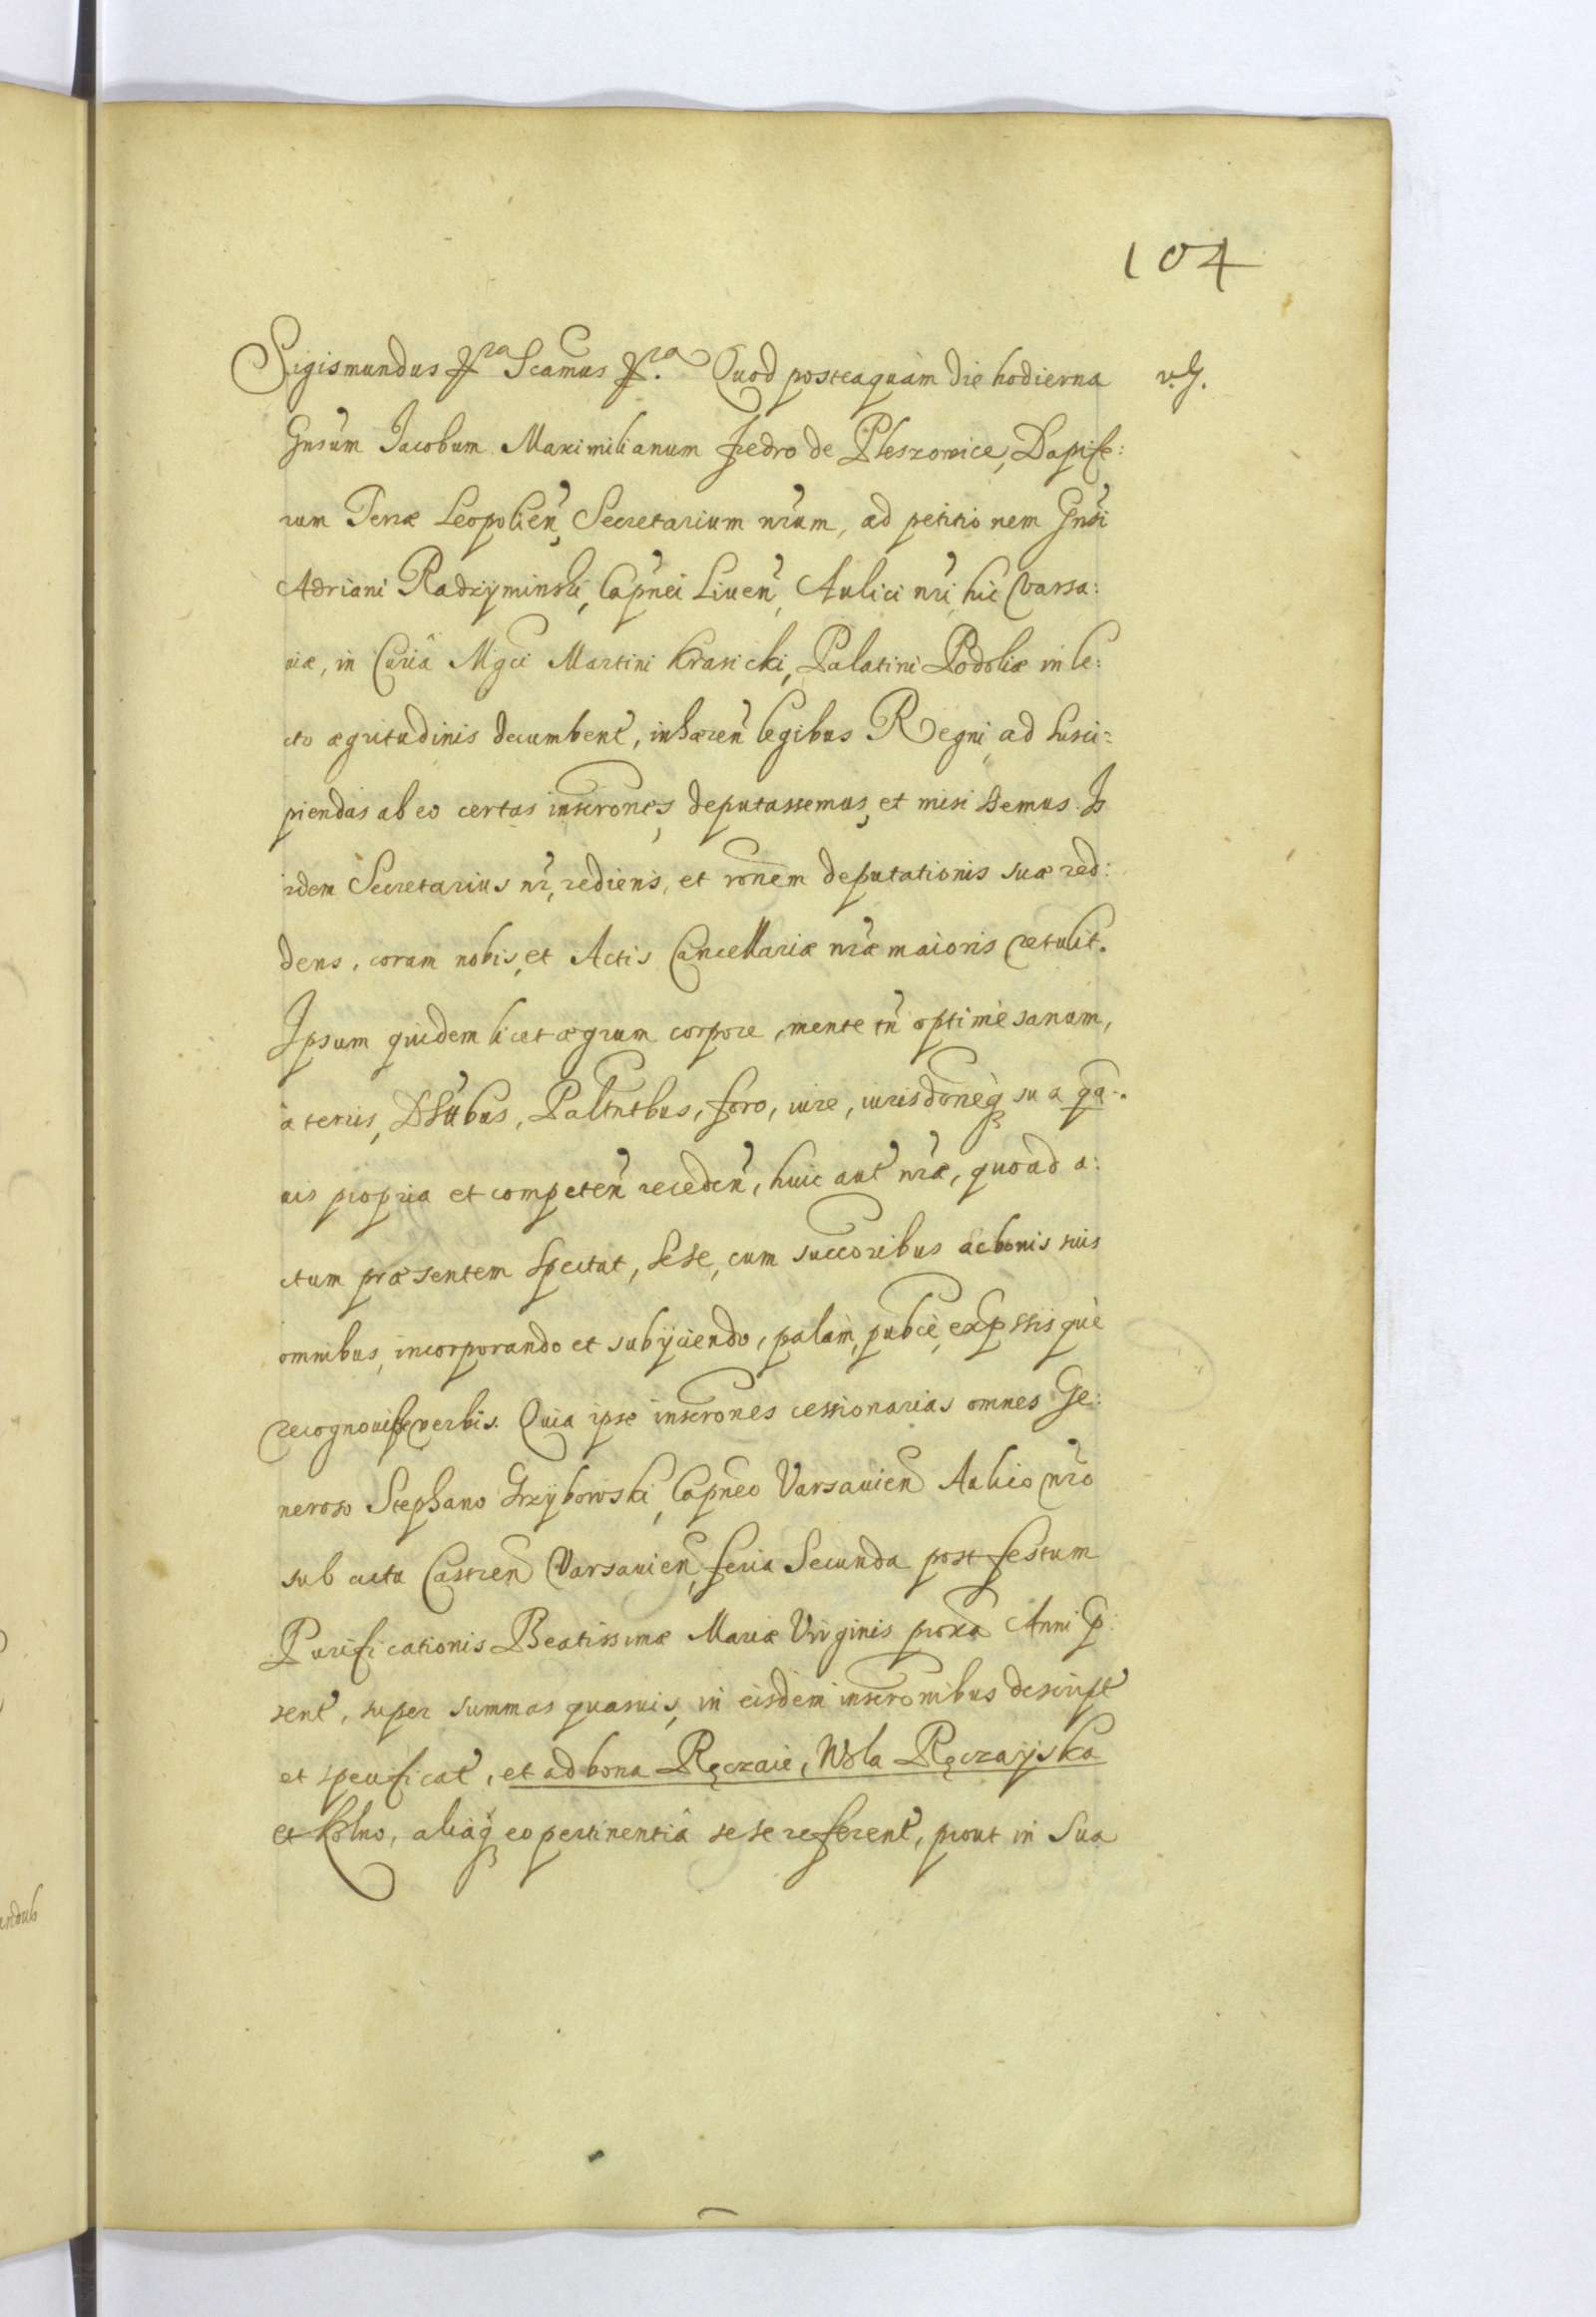 104
Sigismundus etc Scamus etc. Quod posteaquàm die hodierna
Gnsum Jacobum Maximilianum Fredro de Pleszowice, Dapife:
rum Terræ Leopolien, Secretarium nrum, ad petitionem Gnsi
Adriani Radzyminski, Capnei Liuen, Aulici nri hic Varsa:
uiæ, in Curiâ Mgci Martini Krasicki, Palatini Podoliæ in le:
cto ægritudinis decumbent, inhæren legibus Regni, ad susci:
piendas ab eo certas inscrones, deputassemus, et misissemus. Is
idem Secretarius nr, rediens, et ronem deputationis suæ red:
dens, coram nobis, et Actis Cancellariæ nræ maioris retulit.
Ipsum quidem licet ægrum corpore, mente tn optimè sanum,
à terris, Dstibus, Palntbus, foro, iure, iurisdoneq sua qua:
uis propria et competen receden, huic aut nræ, quoad a:
ctum præsentem spectat, sese, cum succoribus ac bonis suis
omnibus, incorporando et subyciendo, palàm, pubcè, expssisquè
recognouisse verbis. Quia ipse inscrones cessionarias omnes Ge:
neroso Stephano Grzybowski, Capneo Varsauien Aulico nro
sub acta Castren Varsauien, feria Secunda post festum
Purificationis Beatissimæ Mariæ Virginis proxa Anni p:
sent, super summas quasuis, in eisdem inscronibus descript
et specificat, et ad bona Ręczaie, Wola Ręczayska
et Kolno, aliaq eo pertinentiâ sese referent, prout in sua